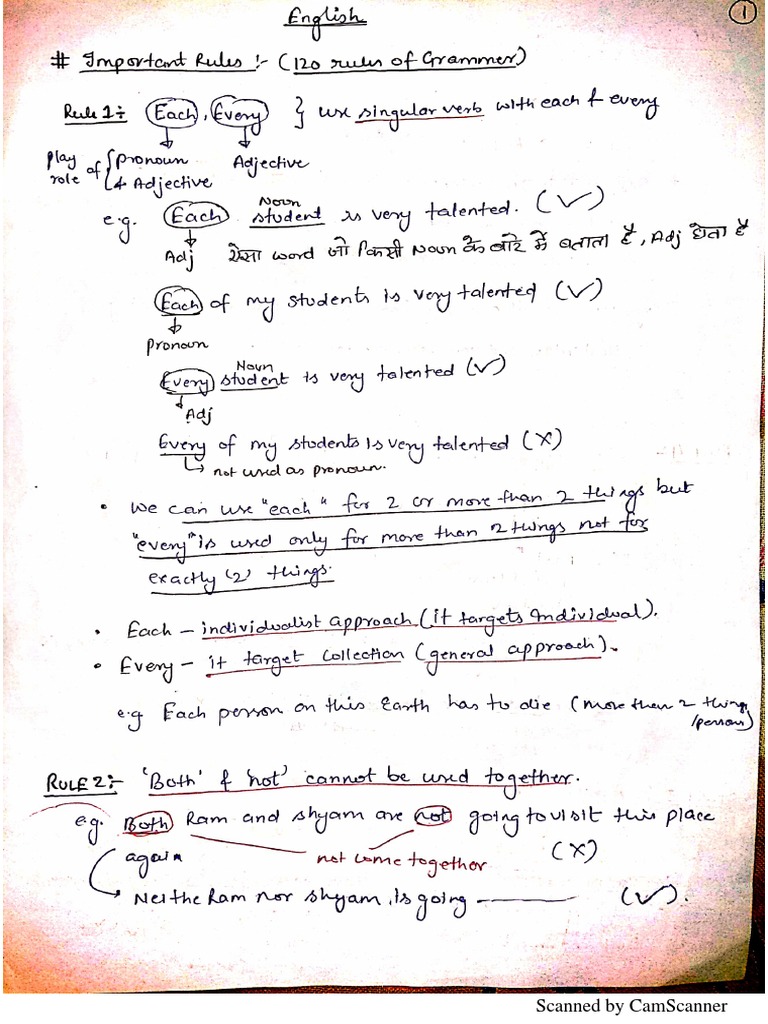 English
1
# Important Rules :- (120 rules of Grammer)
Rule 1:- Each, Every } use singular verb with each & every
Play role of { Pronoun & Adjective
Adjective
Noun
e.g. Each student is very talented. (✓)
Adj ऐसा word जो किसी Noun के बारे में बताता है, Adj होता है
Each of my students is very talented (✓)
Pronoun
Noun
Every student is very talented (✓)
Adj
Every of my students is very talented (X)
not used as pronoun.
• We can use "each" for 2 or more than 2 things but
"every" is used only for more than 2 things not for
exactly (2) things.
• Each – individualist approach (it targets individual).
• Every – it target collection (general approach).
e.g Each person on this Earth has to die (more than 2 things
/person)
RULE 2:- 'Both' & 'not' cannot be used together.
e.g. Both Ram and shyam are not going to visit this place
again not come together (X)
Neithe Ram nor shyam, is going ——— (✓).
Scanned by CamScanner